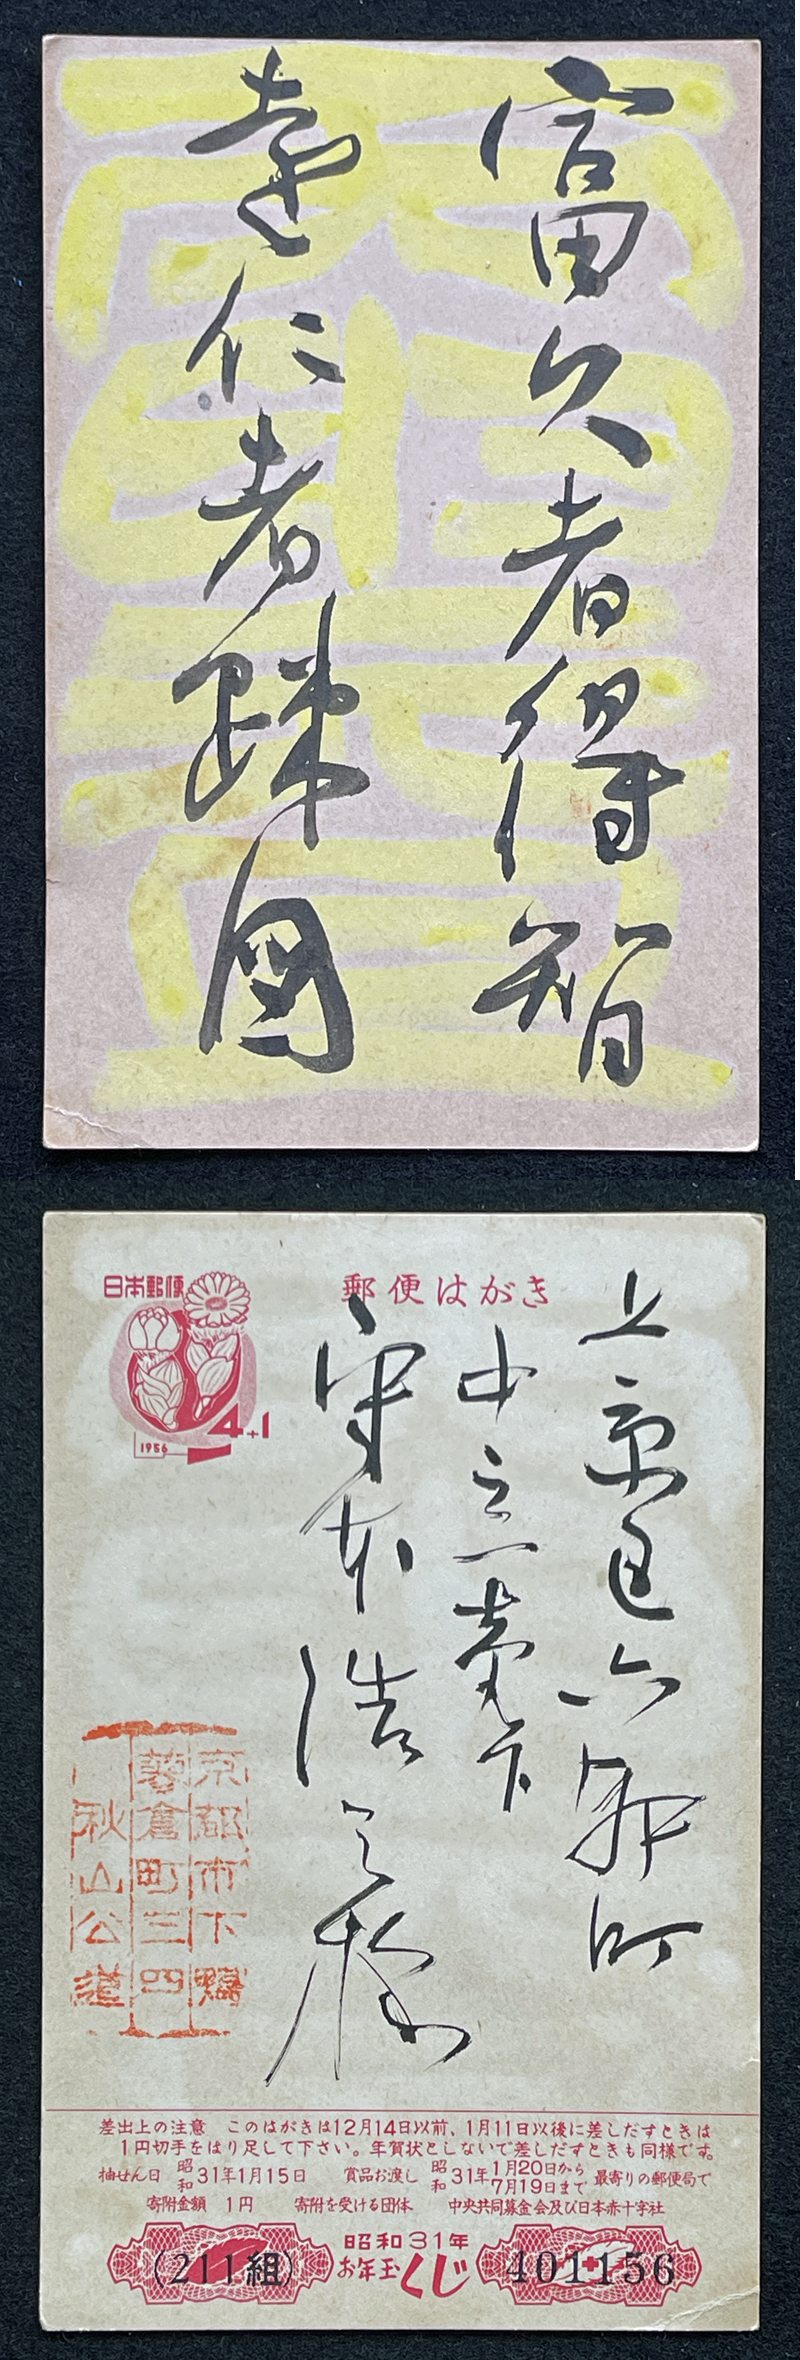 富久者得智
遠仁者疎国
日本郵便
4+1
1956
郵便はがき
上京区六軒町
中立売下
守本浩之様
京都市下鴨
蓼倉町三四
秋山公道
差出上の注意 このはがきは12月14日以前、1月11日以後に差しだすときは
1円切手をはり足して下さい。年賀状としないで差しだすときも同様です。
抽せん日 昭和31年1月15日 賞品お渡し 昭和31年1月20日から7月19日まで 最寄りの郵便局で
寄附金額 1円 寄附を受ける団体 中央共同募金会及び日本赤十字社
(211組)
昭和31年
お年玉くじ
401156